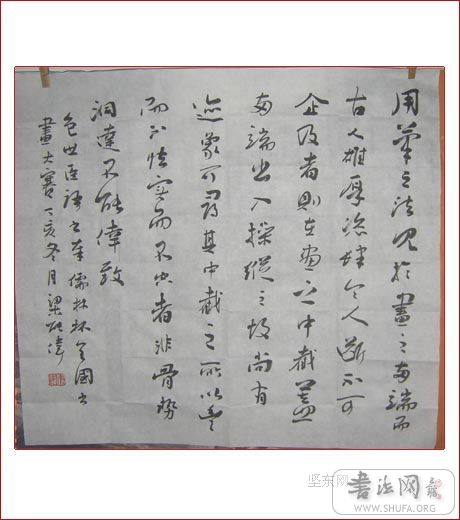 用筆之法見於畫之兩端而
古人雄厚恣肆令人斷不可
企及者則在畫之中截蓋
兩端出入操縱之故尚有
迹象可尋其中截之所以豐
而不怯實而不空者非骨勢
洞達不能倖致
包世臣語書奉儒林杯全國書
畫大賽丁亥冬月梁偉
坚东网
書法网
WWW.SHUFA.ORG